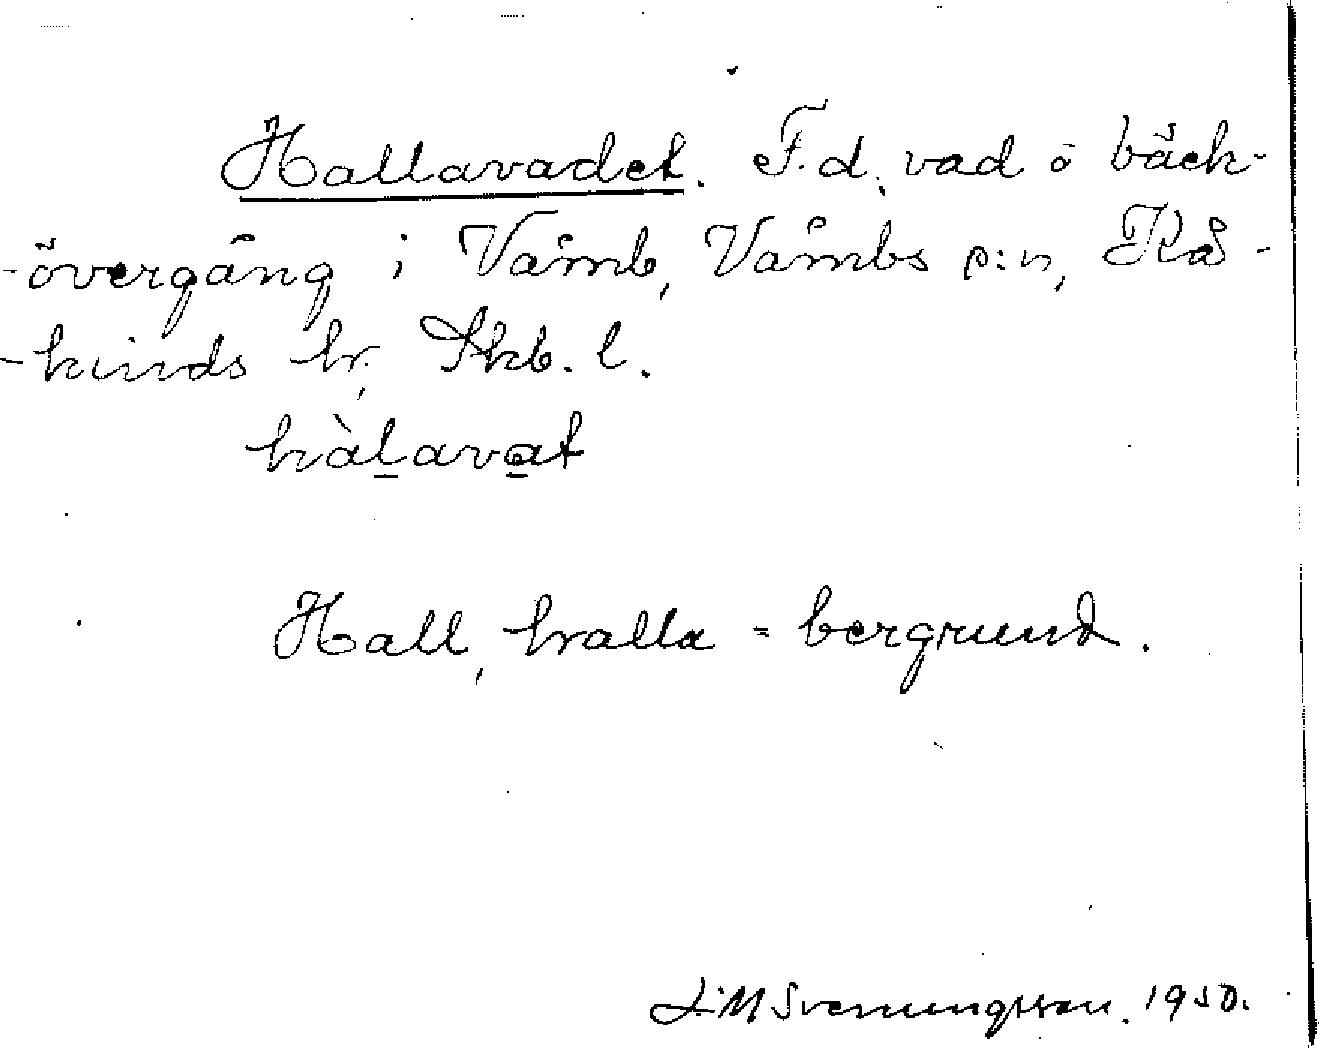 Hallavadet. F.d. vad o bäck-
-övergång i Våmb, Våmbs s:n, Kå-
-kinds hr. Skb. l.
hàlavat
Hall, halla = bergrund.
L. M Svenungsson. 1950.